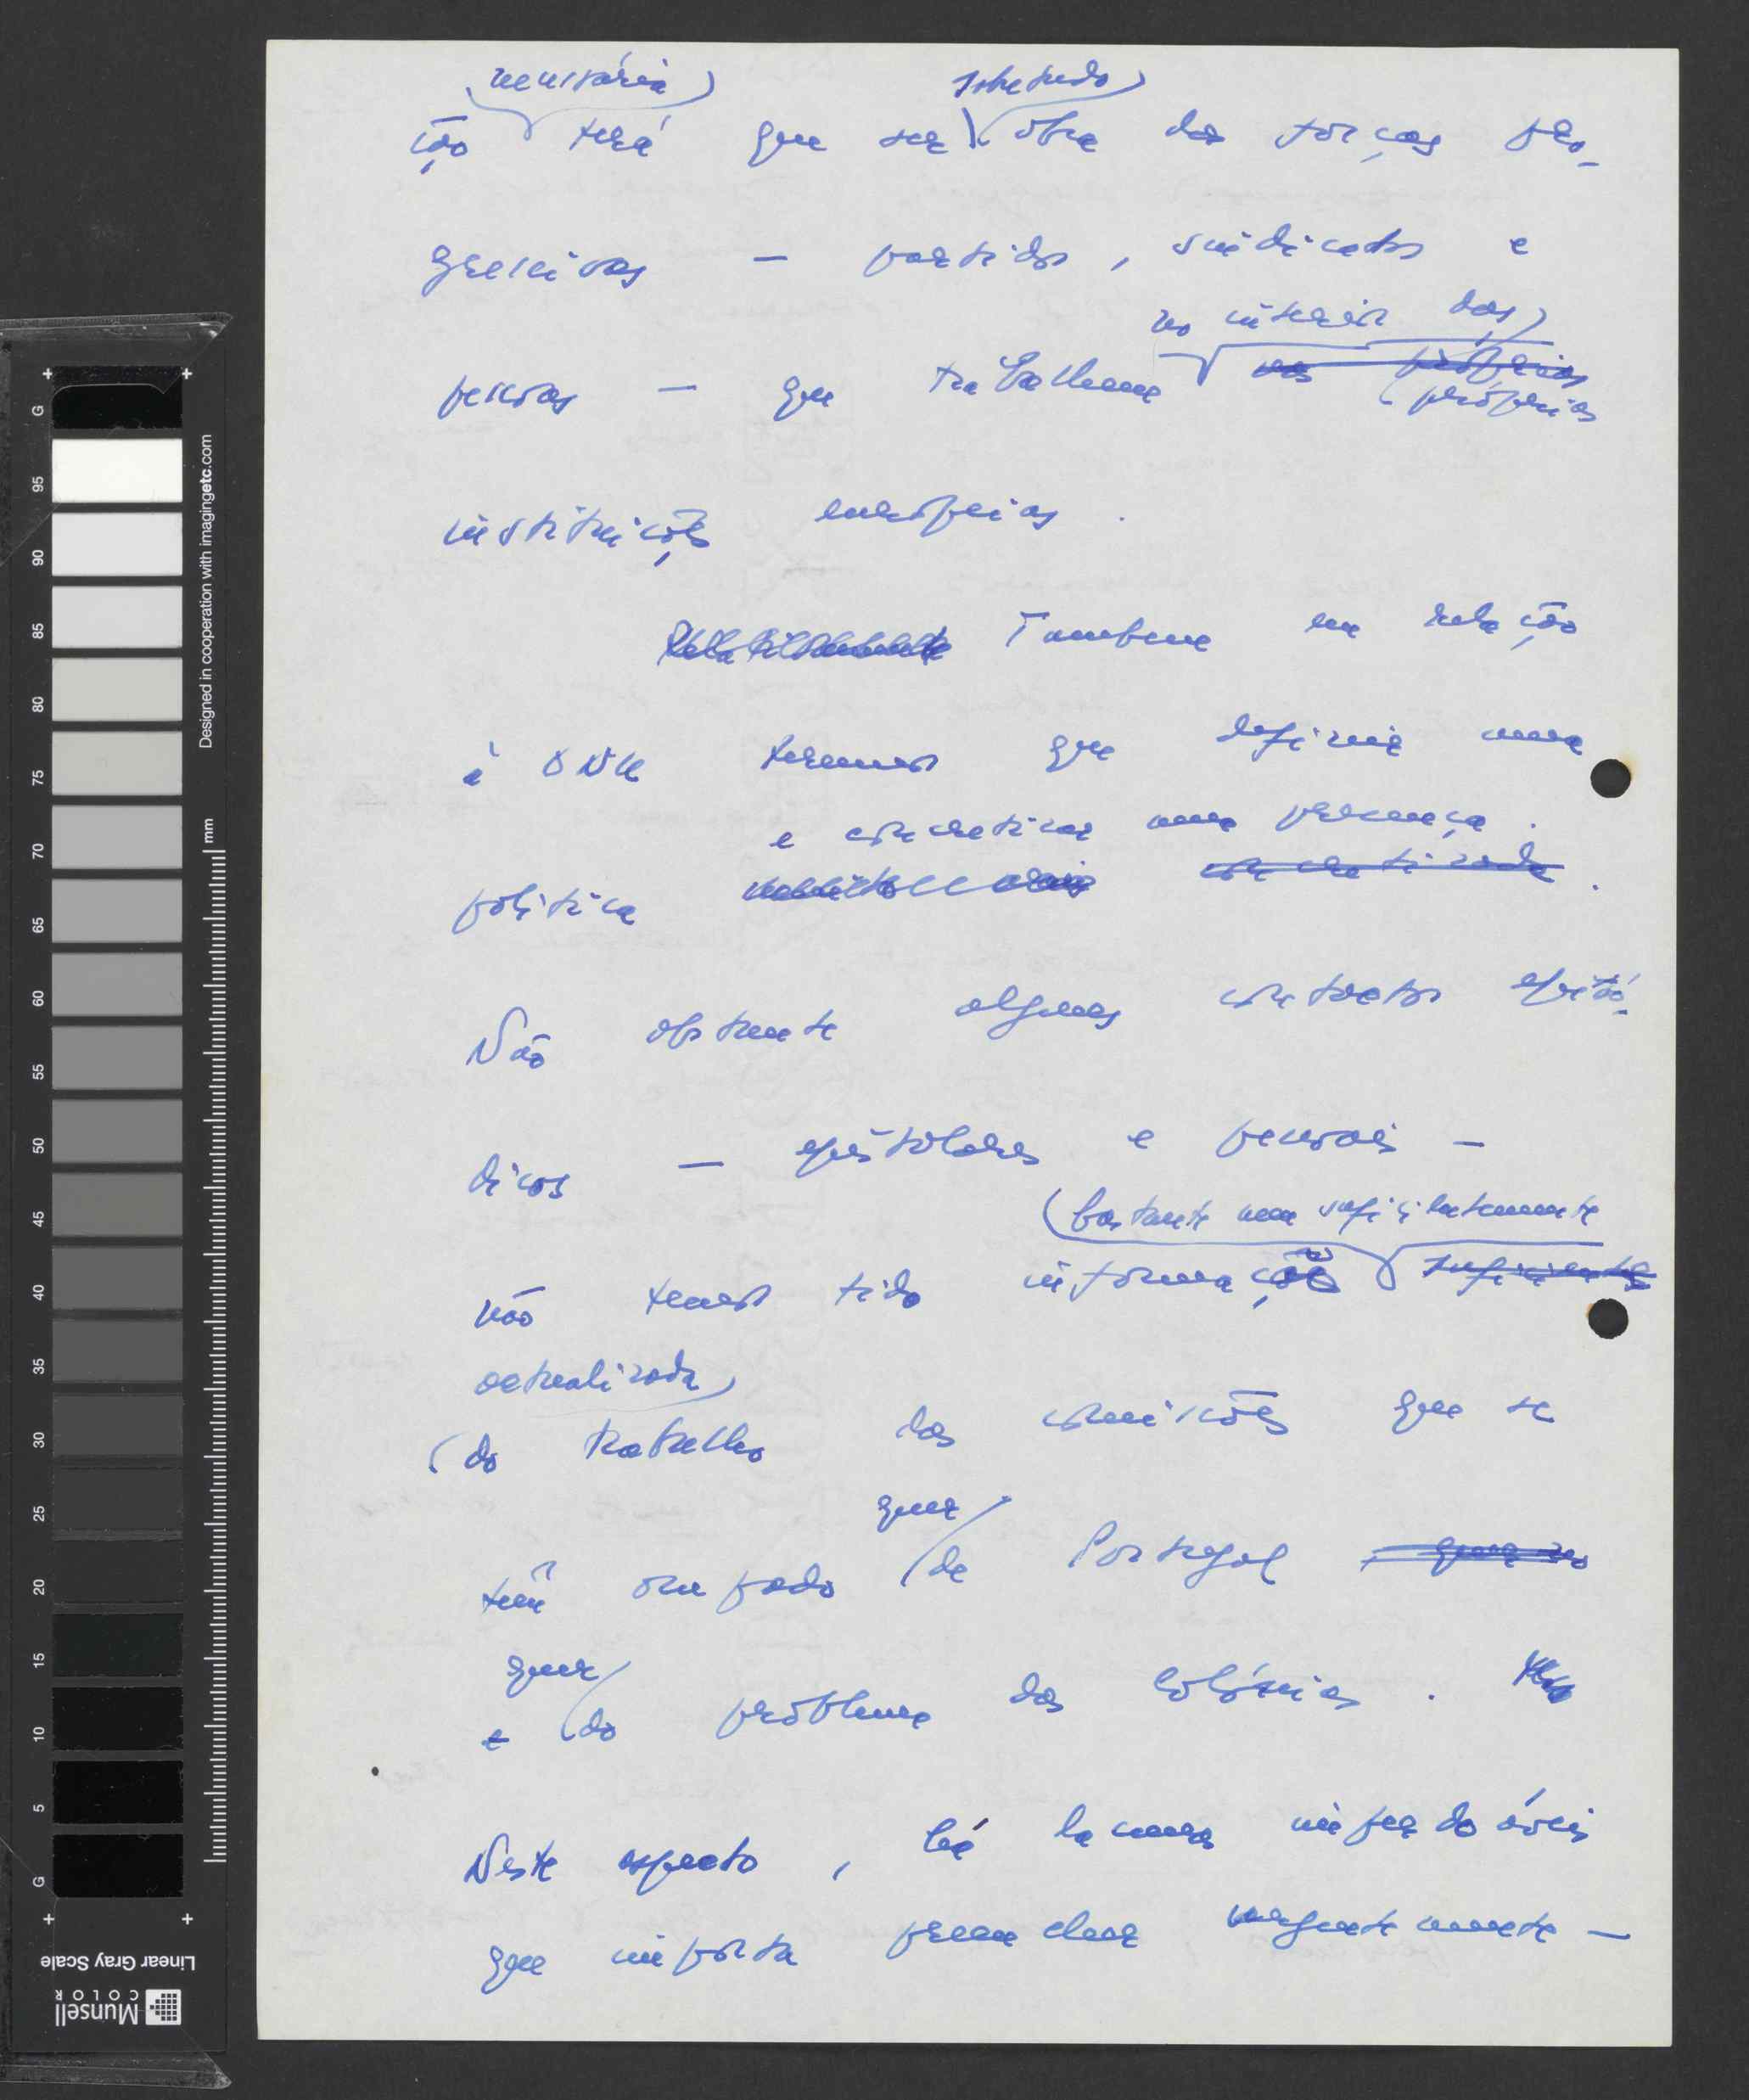 necessária sobretudo
ção terá que ser obra das forças pro-
gressivas — partidos, sindicatos e
no interior das
pessoas — que trabalham nas próprias
próprias
instituições europeias.
Também em relação
à ONU teremos que definir uma
e concretizar uma presença.
política concretizada.
Não obstante alguns contactos episó-
dicos — epistolares e pessoais —
bastante nem suficientemente
não temos tido informação suficientes
actualizada
do trabalho das comissões que se
quer
têm ocupado de Portugal, quer no
quer
e do problema das Colónias.
Neste aspecto, há lacunas imperdoáveis
que importa preencher urgentemente —
G
95
90
85
80
75
70
65
60
55
50
45
40
35
30
25
20
15
10
5
G
mm
Designed in cooperation with imagingetc.com
Linear Gray Scale
Munsell
COLOR